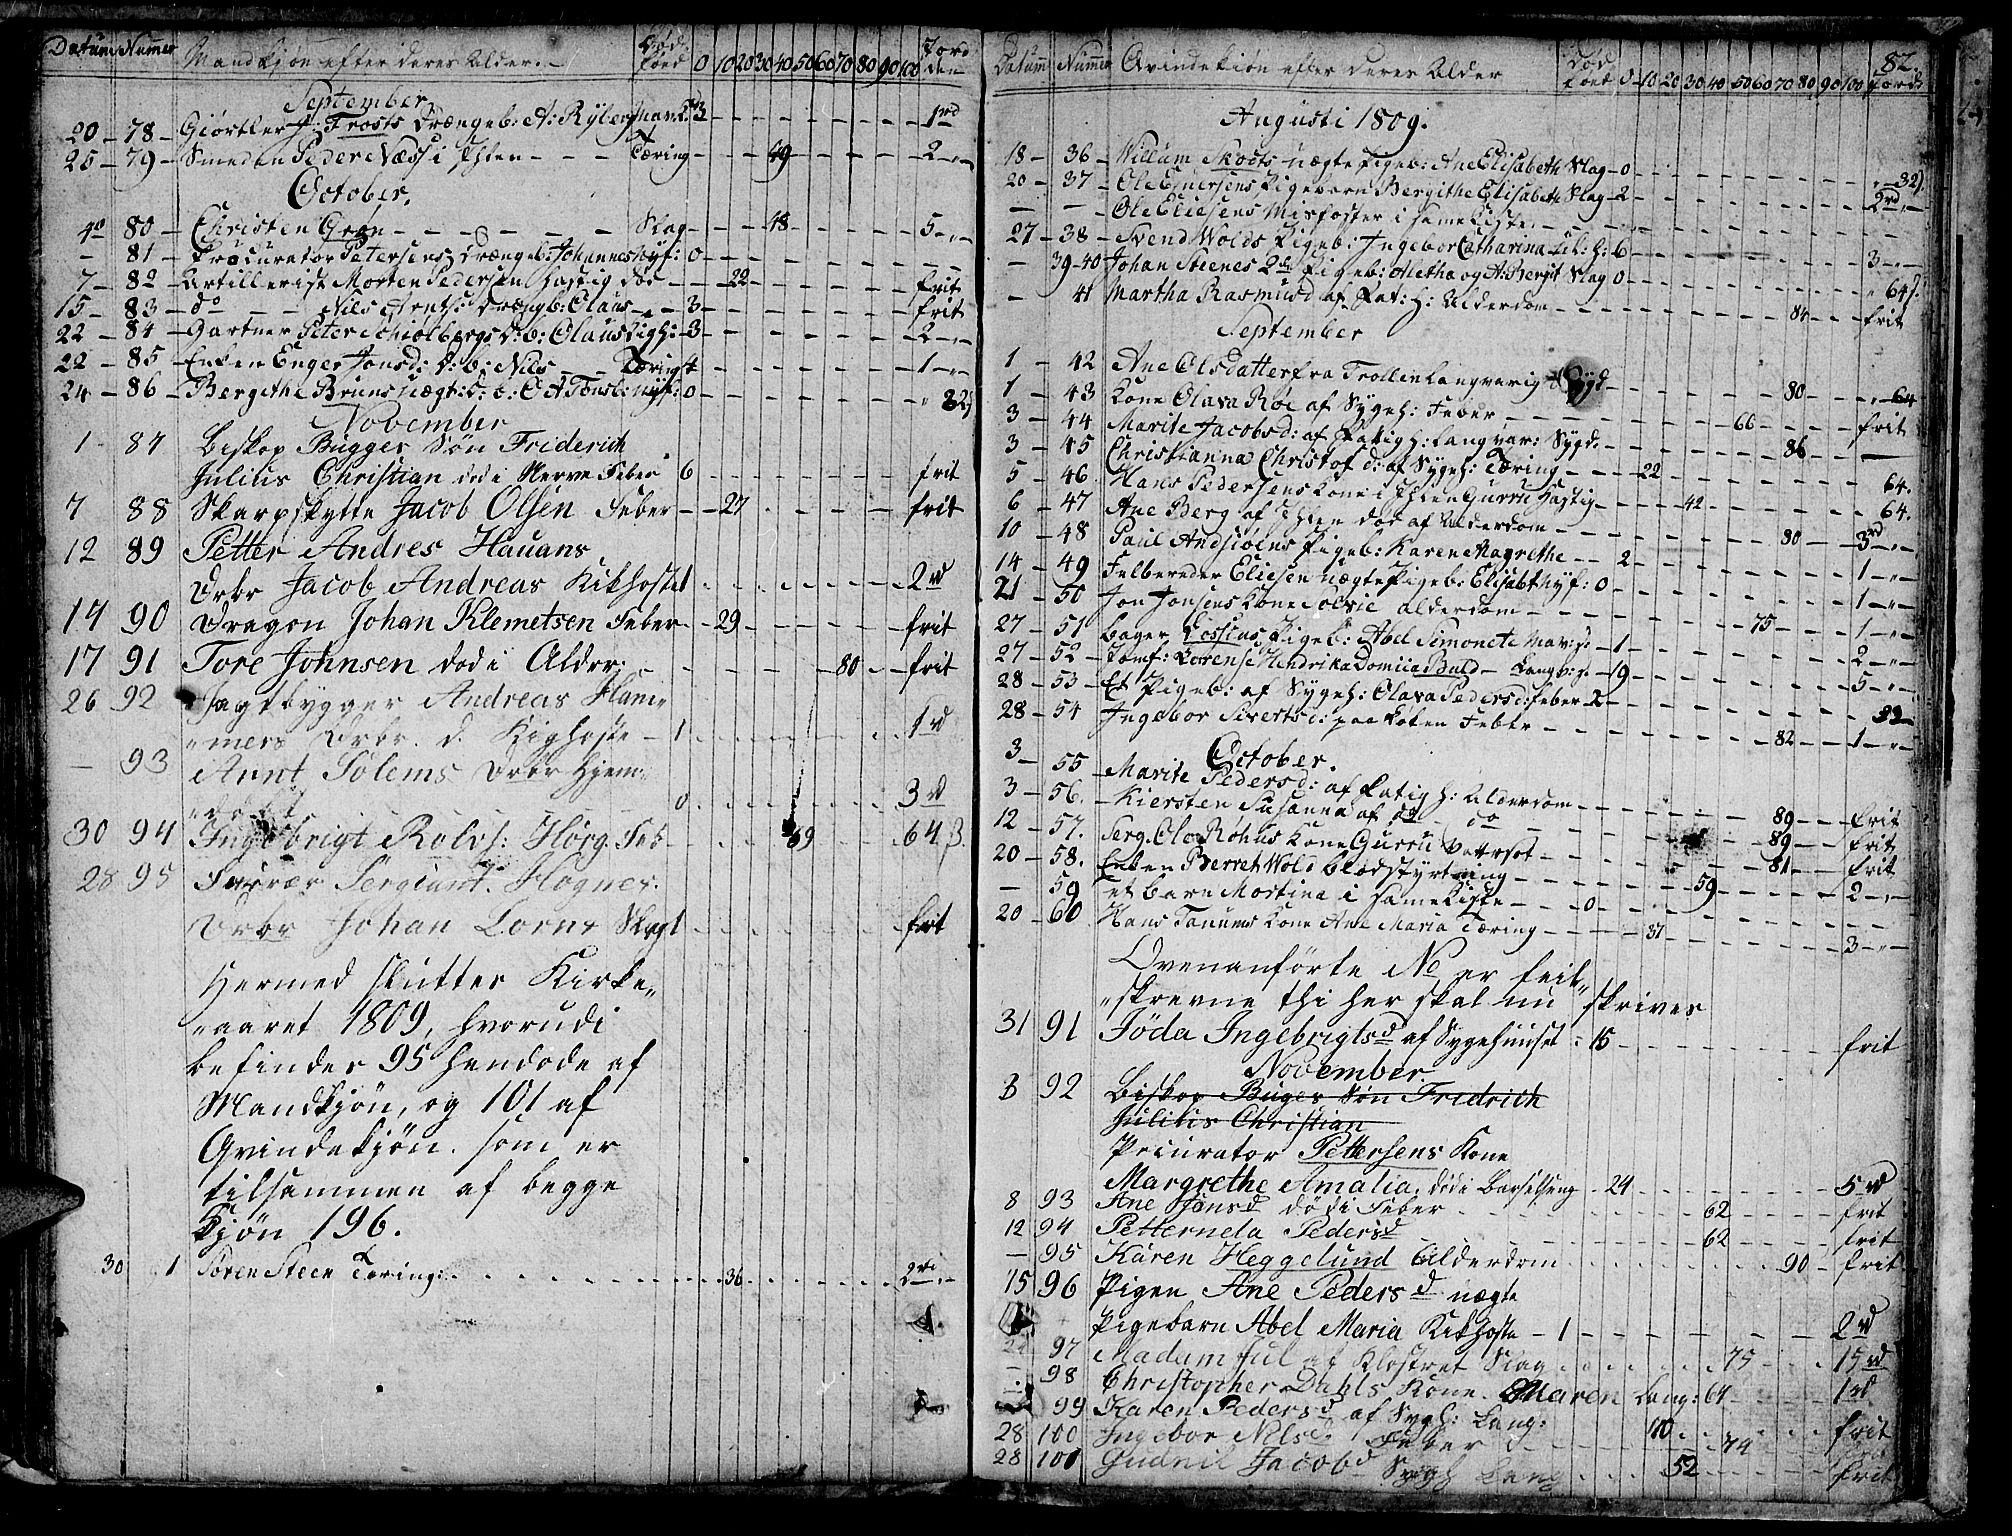 Datum Numer Mandkjøn efter deres Alder. Død foed 0 10 20 30 40 50 60 70 80 90 100 Jorden
September
20 - 78 - Giørtler J: Frosts Drængeb: A: Ryberg 3 1rd
25 - 79 - Smeden Peder Næss i Ihlen - - - Tæring 49 2 „
October.
4 80 Christen Grøn Slag 48 5 „
- 81 - Procurator Petersens Drængeb: Johannes hyf: 0
7 - 82 - Artillerist Morten Pedersen hastig død 22 frit
15 - 83 - do Nils Arnths Drængb: Claus 3 frit
22 - 84 - Gartner Peter Schiølbergs D: b: Claus Kigh: 3 2 „
22 - 85 - Enken Enger Jonsd: D: b: Nils Tæring 4 1 „
24 - 86 - Bergithe Bruns uægt: D: b: O A Tønsb: hyf: 0 32
November
1 87 Biskop Bugges Søn Friderich
Julius Christian død i Nerve Feber 6 frit
7 88 Skarpskytte Jacob Olsen Feber 27 frit
12 89 Petter Andres Hauans
Drbr Jacob Andreas Kikhoste 1 2 rd
14 90 Dragon Johan Klemetsen Feber 29 frit
17 91 Tore Johnsen død i Alder: 80 frit
26 92 Jagtbygger Andreas Ham„
„mers Drbr. d. Kighoste 1 1 rd
- 93 Arnt Solems Drbr hjem„
„døbt 0 3 rd
30 94 Ingebrigt Rolds: Hosp. Feb 69 64 s.
28 95 Forrær Sergiant Hognes
Drbr Johan Lorns Slag 1 frit
Hermed slutter Kirke„
„aaret 1809, hvorudi
befindes 95 hendøde af
Mandkjøn, og 101 af
Qvindekjøn. som er
tilsammen af begge
Kjøn 196.
30 1 Søren Steen Tæring: 36 2 rd
82.
Datum Numer Qvindekiøn efter deres Alder Død foed 0 10 20 30 40 50 60 70 80 90 100 Jord:
Augusti 1809.
18 - 36 - Willum Skotts uægte Pigeb: Ane Elisabeth Slag - 0 „ 32
20 - 37 - Ole Ejnersens Pigebarn Bergithe Elisabeth Slag - 2 2rd „
- - Ole Eliesens Misfoster i same Kiste
27 - 38 - Svend Wolds Pigeb: Ingebor Catharina 6 3 „
- 39-40 Johan Steenes 2de Pigeb: Aletha og A: Bergit Slag 0 „ 64
- 41 Martha Rasmusd af Fat: h: Alderdom 84 frit
September
1 - 42 Ane Olsdatter fra Trolle Langvarig Sygd 80 „ 64
1 - 43 Kone Olava Roe af Sygeh: Feber frit
3 - 44 Marite Jacobsd: af Fattigh: langvar: Sygd: 66
3 - 45 Christianna Christofd: af Sygeh: Tæring 86
5 - 46 Hans Pedersens Kone i Ihlen Gurru hastig 22 64.
6 - 47 Ane Berg af Ihlen død af Alderdom 42 64.
10 - 48 Paul Andsiøens Pigeb: Karen Magrethe 80 3rd
14 - 49 Felbereder Eliesen uægte Pigeb: Elisabt hyf: 0 2 1 „
21 - 50 Jon Jonsens Kone Solvie alderdom 1 „
27 - 51 Bager Lossius Pigeb: Abel Simonete 1 75 1 „
27 - 52 - Jomf: Lorense Hendrika Domiia Buld 19 2 „
28 - 53 - Et Pigeb: af Sygeh: Olava Pedersd: feber 2 5 „
28 - 54 Ingebor Sivertsd: paa Løkken Feber 82 1 „
October.
3 55 Marite Pedersd: af Fatigh: Alderdom 89 frit
3 - 56. Kiersten Susanna af do do 89 frit
12 - 57. Serg. Olo Rohus Kone Gurru Vattersot 81 frit
20 - 58. Enken Berret Wold blodstyrtning 59 2 „
- 59 et barn Martina i same Kiste 0
20 - 60 Hans Tanums Kone Ane Maria Tæring 37 3 „
Ovenanførte No er feil„
„skrevne thi her skal nu skrives
31 91 Jøda Ingebrigtsd af Sygehuuset 15 frit
November
3 92 Biskop Buges Søn Fredrich
Julius Christian
Prcurator Pettersens Kone
Margrethe Amalia, død i Barselseng 24 5 rd
8 93 Ane Jonsd død i Feber 62 frit
12 94 Petternela Pedersd 62 frit
- 95 Karen Heggelund Alderdom 90 frit
15 96 Pigen Ane Pedersd uægte
Pigebarn Abel Maria Kikhoste 1 2 rd
97 Madam Juul af Klostret Slag 75 15 rd
98 Christopher Dahls Kone Maren Lang: 64 1 rd
99 Karen Pedersd af Sygh: Lang: 110 frit
28 100 Ingebor Nelsd: Feber 74
28 101 Gudnil Jacobd Sygh Lang 52 frit